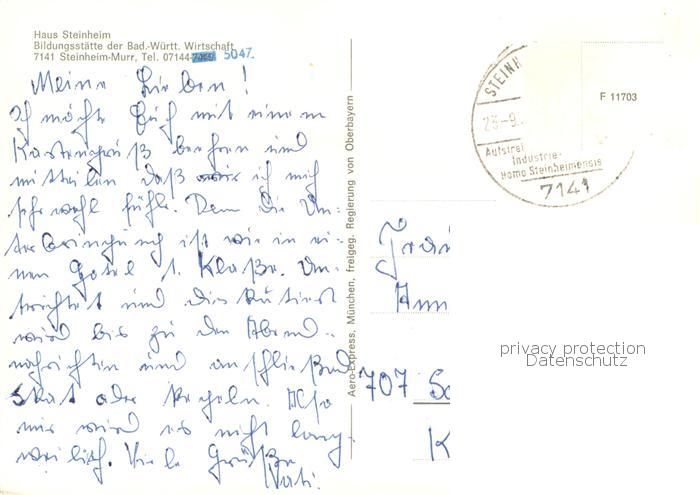 Haus Steinheim
Bildungsstätte der Bad.-Württ. Wirtschaft
7141 Steinheim-Murr, Tel. 07144- 5047.
Meine Lieben!
Ich möchte Euch mit einem
Kartengruß beehren und
mitteilen daß ich mich
sehr wohl fühle. Denn die Un-
terbringung ist wie in ei-
nem Hotel 1. Klaße. Un-
terrichtet und diskutiert
wird bis zu den Abend-
nachrichten und anschließend
Skat oder Kegeln. Also
mir wird es nicht lang-
weilig. Viele Grüße
Vati.
Aero-Express, München, freigeg. Regierung von Oberbayern
STEINH
23-9.
Industrie-
Homo Steinheimensis
7141
F 11703
Frau
Ann
707 Sc
K
privacy protection
Datenschutz